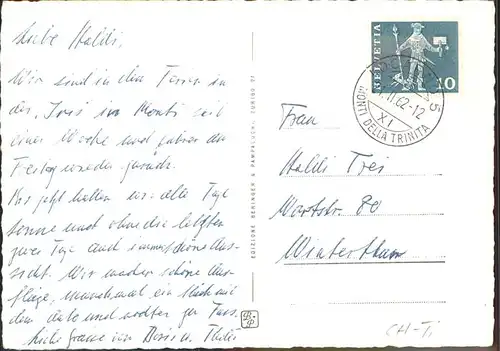 Liebe Haldi,
Wir sind in den Ferien in
der, Iris im Monti seit
einer Woche und fahren den
Freitag wieder zurück.
Bis jetzt hatten wir alle Tage
Sonne und ohne die letzten
zwei Tage auch immer schöne Aus-
sicht. Wir machen schöne Aus-
flüge, manchmal ein Stück mit
dem Auto und wollen zu Fuss.
Liebe Grüsse von
EDIZIONE BERINGER & PAMPALUCHI, ZURIGO 27
HELVETIA
10
MONTI
DELLA TRINITA
62-12
XI
Frau
Haldi Frei
Wartstr. 80
Winterthur
CH-Ti